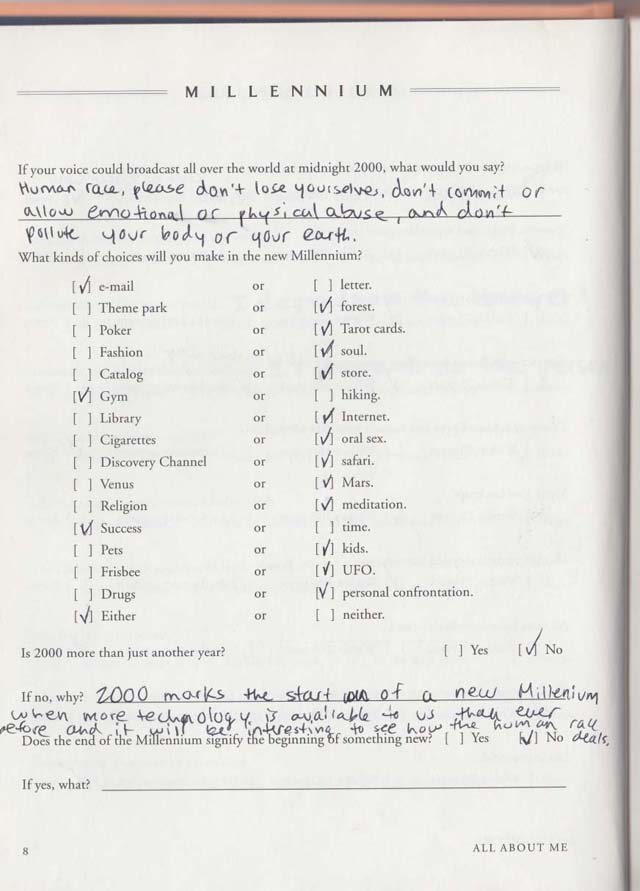 MILLENNIUM
If your voice could broadcast all over the world at midnight 2000, what would you say?
Human race, please don't lose yourselves, don't commit or
allow emotional or physical abuse, and don't
pollute your body or your earth.
What kinds of choices will you make in the new Millennium?
[✓] e-mail or [ ] letter.
[ ] Theme park or [✓] forest.
[ ] Poker or [✓] Tarot cards.
[ ] Fashion or [✓] soul.
[ ] Catalog or [✓] store.
[✓] Gym or [ ] hiking.
[ ] Library or [✓] Internet.
[ ] Cigarettes or [✓] oral sex.
[ ] Discovery Channel or [✓] safari.
[ ] Venus or [✓] Mars.
[ ] Religion or [✓] meditation.
[✓] Success or [ ] time.
[ ] Pets or [✓] kids.
[ ] Frisbee or [✓] UFO.
[ ] Drugs or [✓] personal confrontation.
[✓] Either or [ ] neither.
Is 2000 more than just another year? [ ] Yes [✓] No
If no, why? 2000 marks the start of a new Millenium
when more technology is available to us than ever
before and it will be interesting to see how the human race
deals.
Does the end of the Millennium signify the beginning of something new? [ ] Yes [✓] No
If yes, what?
8 ALL ABOUT ME